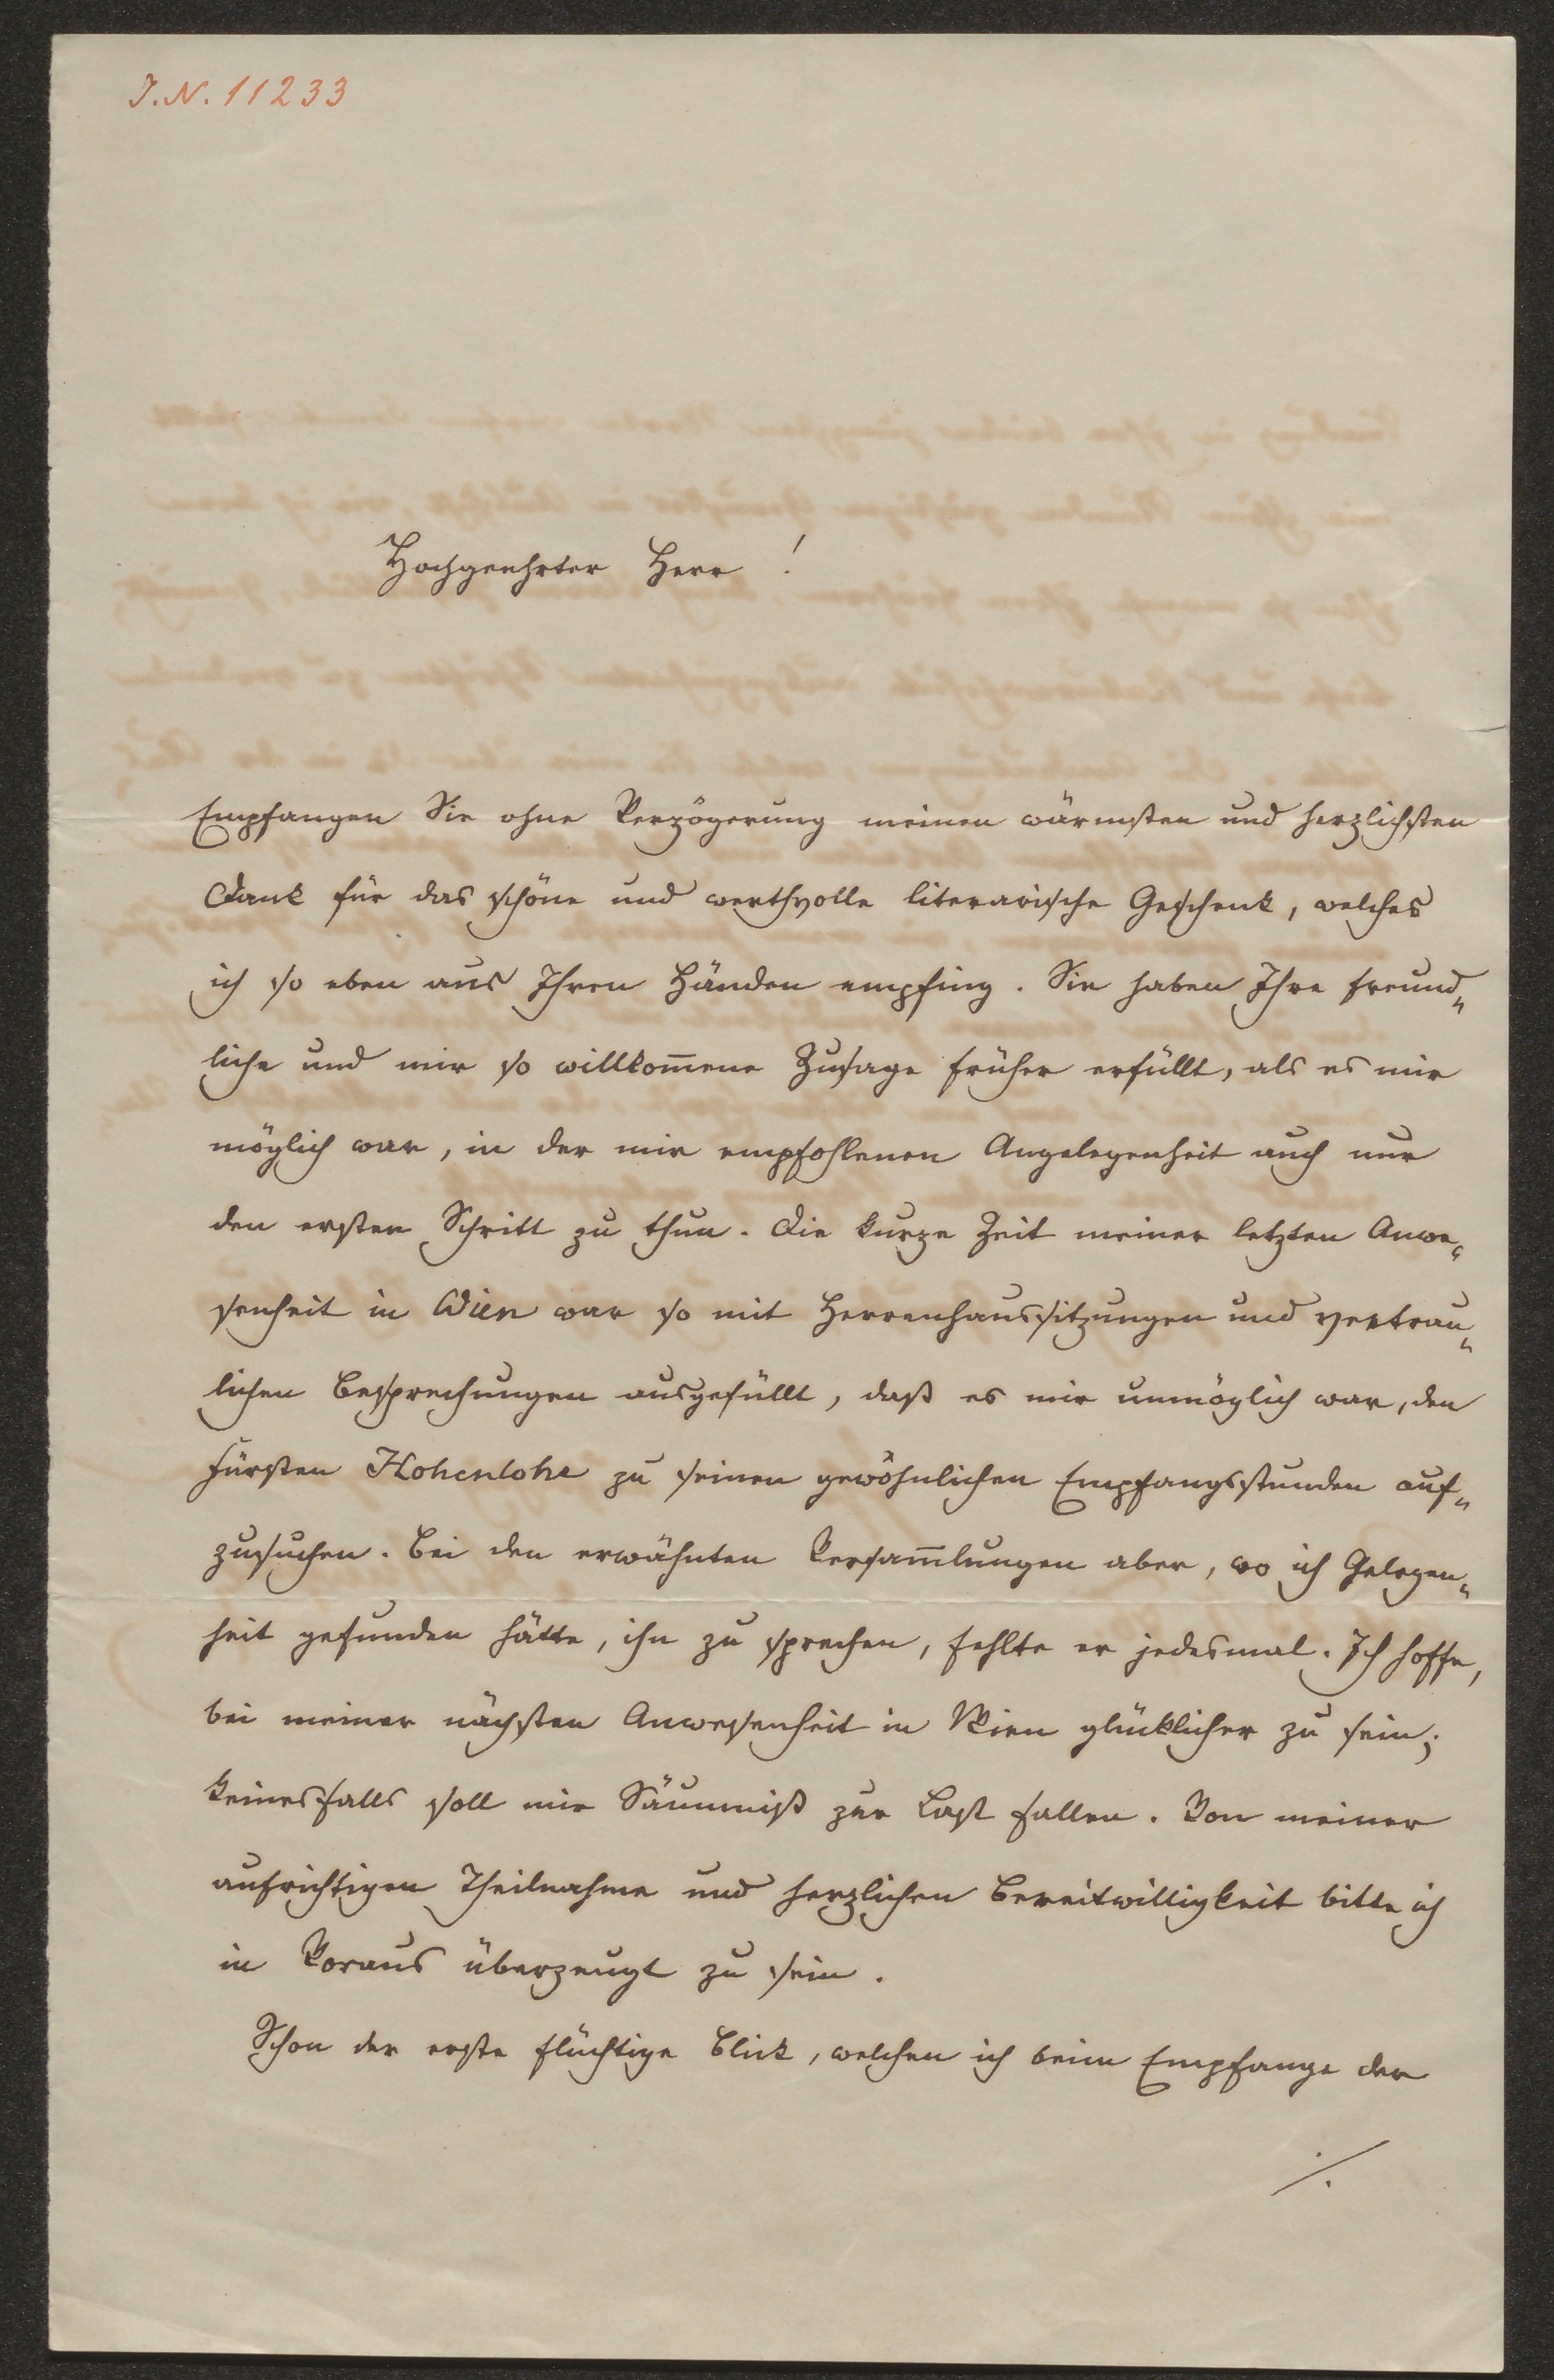 J.N. 11233
Hochgeehrter Herr !
Empfangen Sie ohne Verzögerung meinen wärmsten und herzlichsten
Dank für das schöne und werthvolle literarische Geschenk, welches
ich so eben aus Ihren Händen empfing. Sie haben Ihre freund„
liche und mir so willkom̅ene Zusage früher erfüllt, als es mir
möglich war, in der mir empfohlenen Angelegenheit auch nur
den ersten Schritt zu thun. Die kurze Zeit meiner letzten Anwe„
senheit in Wien war so mit Herrenhaussitzungen und vertrau„
lichen Besprechungen ausgefüllt, daß es mir unmöglich war, den
Fürsten Hohenlohe zu seinen gewöhnlichen Empfangsstunden auf„
zusuchen. Bei den erwähnten Versam̅lungen aber, wo ich Gelegen„
heit gefunden hätte, ihn zu sprechen, fehlte er jedesmal. Ich hoffe,
bei meiner nächsten Anwesenheit in Wien glücklicher zu sein;
keinesfalls soll mir Säumniß zur Last fallen. Von meiner
aufrichtigen Theilnahme und herzlichen Bereitwilligkeit bitte ich
in Voraus überzeugt zu sein.
Schon der erste flüchtige Blick, welchen ich beim Empfange der
./.